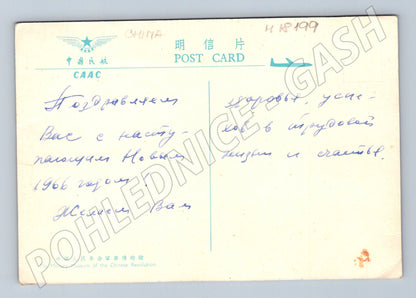 中国民航
CAAC
CHINA
明信片
POST CARD
H 18199
Поздравляем
Вас с насту-
пающим Новым
1966 годом!
Желаем Вам
здоровья, успе-
хов в трудовой
жизни и счастья.
Museum of the Chinese Revolution
POHLEDNICE - GASH